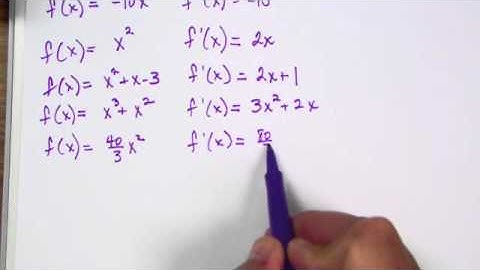 f(x) = -10x f'(x) = -10
f(x) = x² f'(x) = 2x
f(x) = x²+x-3 f'(x) = 2x+1
f(x) = x³+x² f'(x) = 3x²+2x
f(x) = 40/3 x² f'(x) = 80/